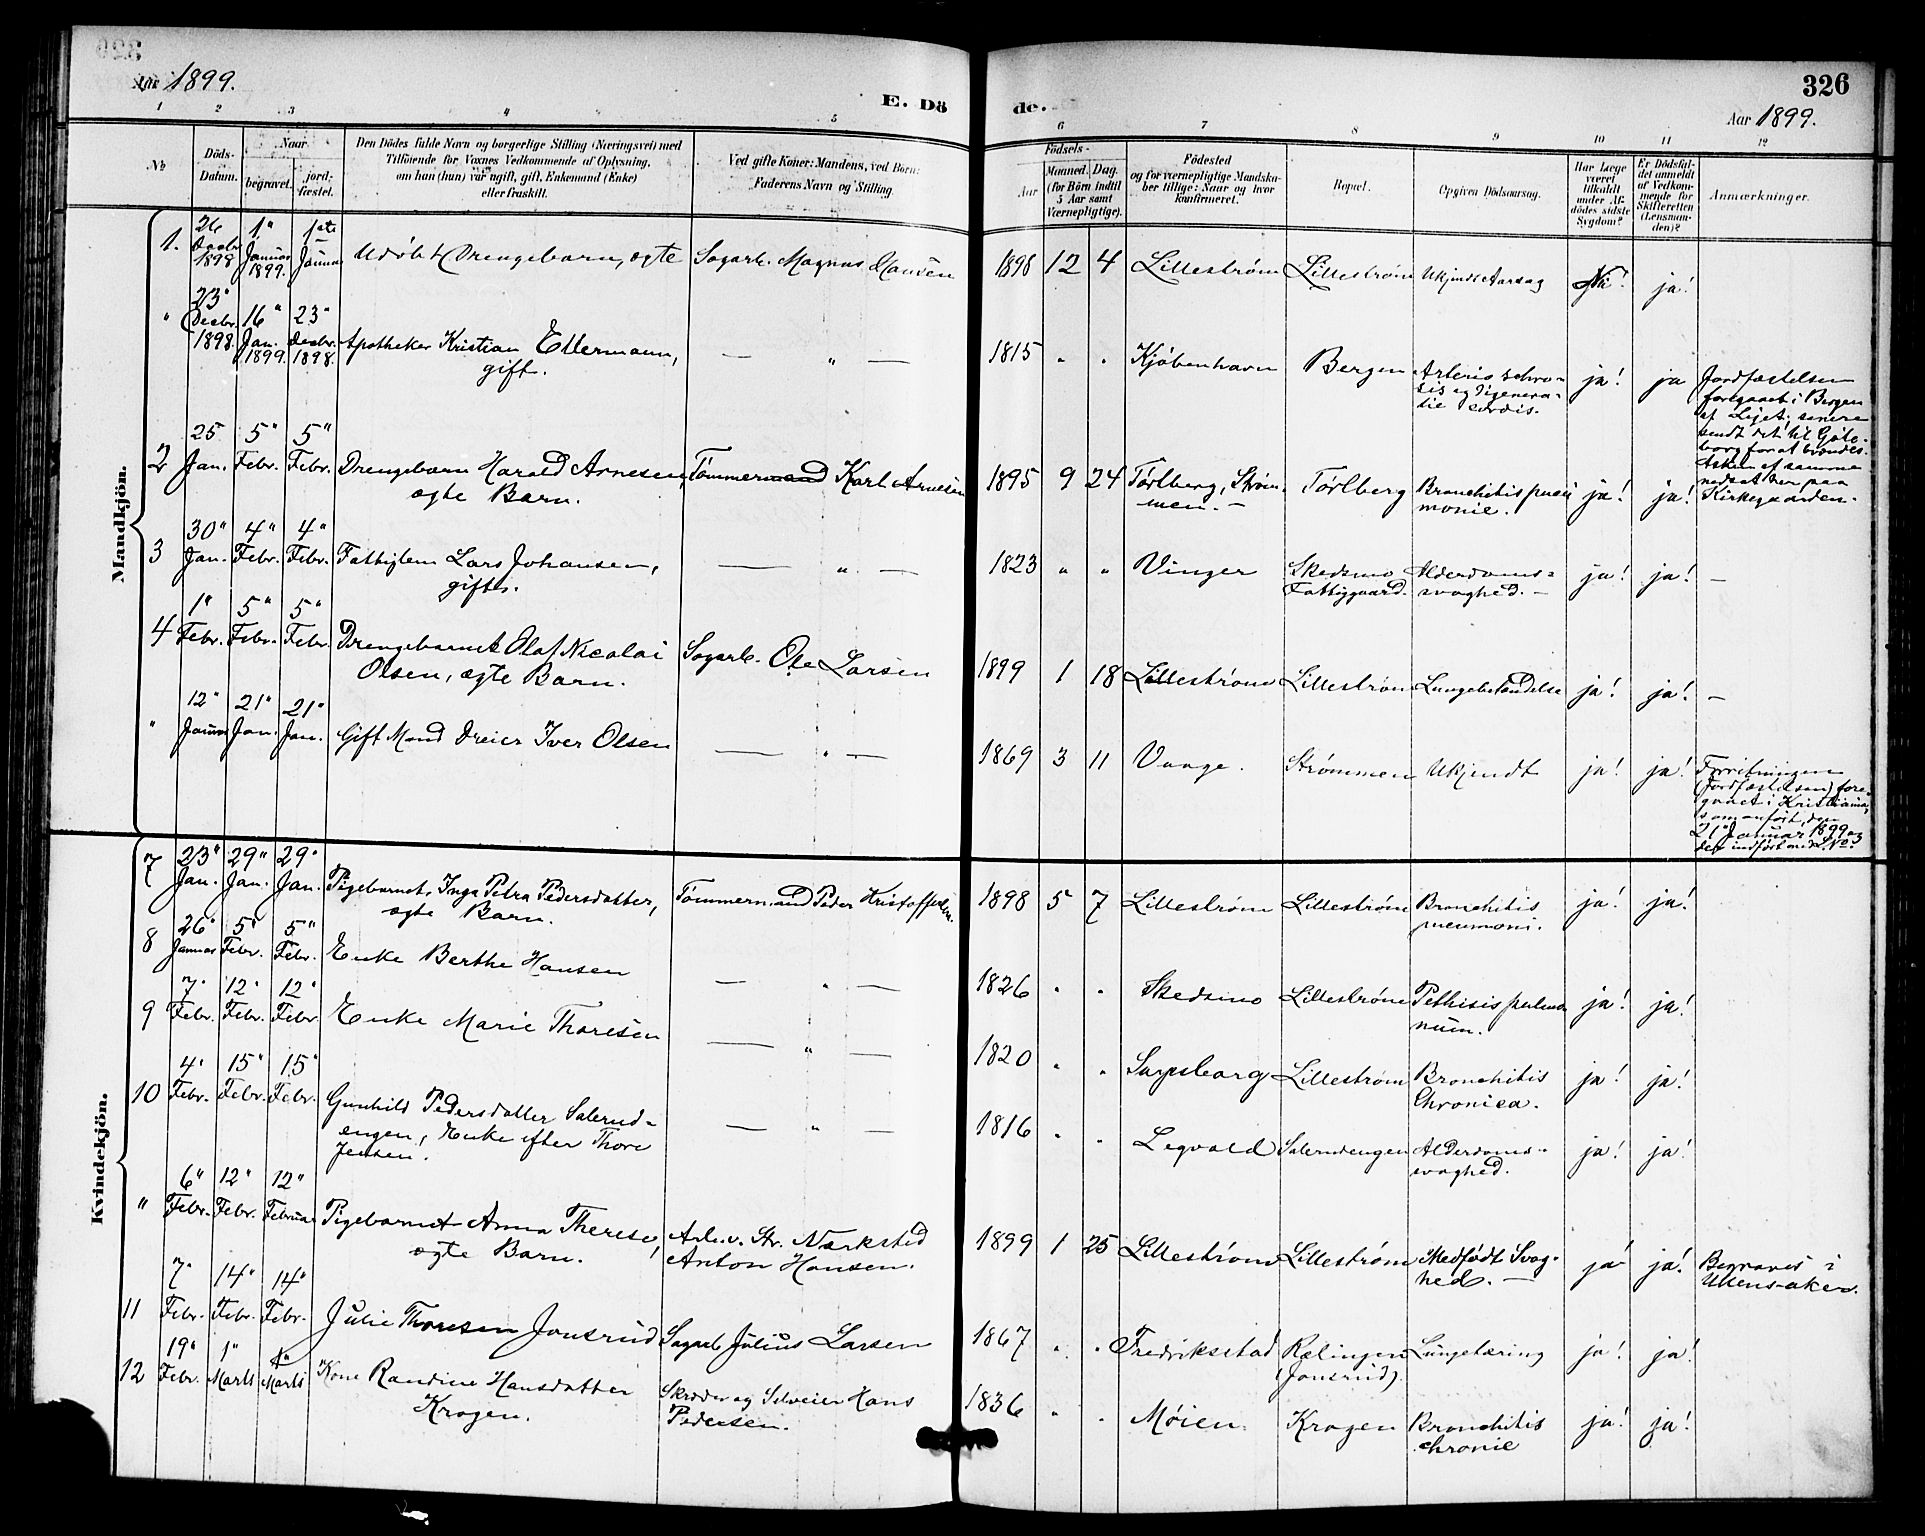 Aar 1899.
E. Dö
de.
326
Aar 1899.
1 2 3 4 5 6 7 8 9 10 11 12
No
Döds-
Datum.
Naar
begravet.
jord-
fæstet.
Den Dödes fulde Navn og borgerlige Stilling (Næringsvei) med
Tilföiende for Voxnes Vedkommende af Oplysning,
om han (hun) var ugift, gift, Enkemand (Enke)
eller fraskilt.
Ved gifte Koner: Mandens, ved Börn:
Faderens Navn og Stilling.
Födsels-
Aar
Maaned. Dag.
(for Börn indtil
5 Aar samt
Værnepligtige).
Födested
og for værnepligtige Mandska-
ber tillige: Naar og hvor
konfirmeret.
Bopæl.
Opgiven Dödsaarsag.
Har Læge
været
tilkaldt
under Af-
dödes sidste
Sygdom?
Er Dödsfal-
det anmeldt
af Vedkom-
mende for
Skifteretten
(Lensman-
den)?
Anmærkninger.
Mandkjön.
1. 26 Decbr 1898 1" Januar 1899. 1ste Januar Udöbt Drengebarn, ægte Sagarb. Magnus Hansen 1898 12 4 Lilleström Lilleström Ukjendt Aarsag Nei! ja!
" 23" Decbr. 1898. 16" Jan. 1899. 23" Decbr. 1898. Apotheker Kristian Ellermann,
gift. — " — 1815 " " Kjöbenhavn Bergen ja! ja
Jordfæstelsen
foregaaet i Bergen
af Liget; senere
sendt det til Göte-
borg for at brændes.
Asken af samme
nedsat her paa
Kirkegaarden.
2 25 Jan. 5" Febr. 5" Febr. Drengebarn Harald Arnesen,
ægte Barn. Tömmermand Karl Arnesen 1895 9 24 Tórlberg, Ström-
men. — Tórlberg Bronchitis pneu
monie. ja! ja!
3 30" Jan. 4" Febr. 4" Febr. Fattiglem Lars Johansen,
gift. — " — 1823 " " Vinger Skedsmo
Fattiggaard. Alderdoms-
svaghed. — ja! ja! —
4 1" Febr. 5" Febr. 5" Febr. Drengebarnet Olaf Nicolai
Olsen, ægte Barn. Sagarb. Ole Larsen 1899 1 18 Lilleström Lilleström Lungebetændelse ja! ja! —
" 12" Januar 21" Jan. 21" Jan. Gift Mand Dreier Iver Olsen — " — 1869 3 11 Vaage. Strömmen Ukjendt ja! ja!
Forretningen
(Jordfæstelsen) fore-
gaaet i Kristiania,
som anfört, den
21" Januar 1899 og
der indfört under No 3
Kvindekjön.
7 23" Jan. 29" Jan. 29" Jan. Pigebarnet Inga Petra Pedersdatter,
ægte Barn. Tömmermand Peder Kristoffersen. 1898 5 7 Lilleström Lilleström Bronchitis
pneumoni. ja! ja!
8 26" Januar 5" Febr. 5" Febr. Enke Berthe Hansen — " — 1826 " " Skedsmo Lilleström Pethisis pulmo
num. ja! ja!
9 7" Febr. 12" Febr. 12" Febr. Enke Marie Thoresen — " — 1820 " " Sarpsborg Lilleström Bronchitis
Chronica. ja! ja!
10 4" Febr. 15" Febr. 15" Febr. Gunhild Pedersdatter Salerud-
engen, Enke efter Thore
Jensen. — " — 1816 " " Leqvold Salerudengen Alderdoms-
svaghed. ja! ja!
" 6" Febr. 12" Febr. 12" Februar Pigebarnet Anna Therese,
ægte Barn. Arb. v. Str. Værksted
Anton Hansen. 1899 1 25 Lilleström Lilleström Medfödt Svag-
hed. — ja! ja! Begraves i
Ullensaker.
11 7" Febr. 14" Febr. 14" Febr. Julie Thoresen Jonsrud Sagarb. Julius Larsen 1867 " " Fredriksstad Rælingen
(Jonsrud). Lungetæring ja! ja!
12 19" Febr. 1" Marts 1" Marts Kone Randine Hansdatter
Krogen. Skræder og Selveier Hans
Pedersen. 1836 " " Móien Krogen Bronchitis
chronic ja! ja!